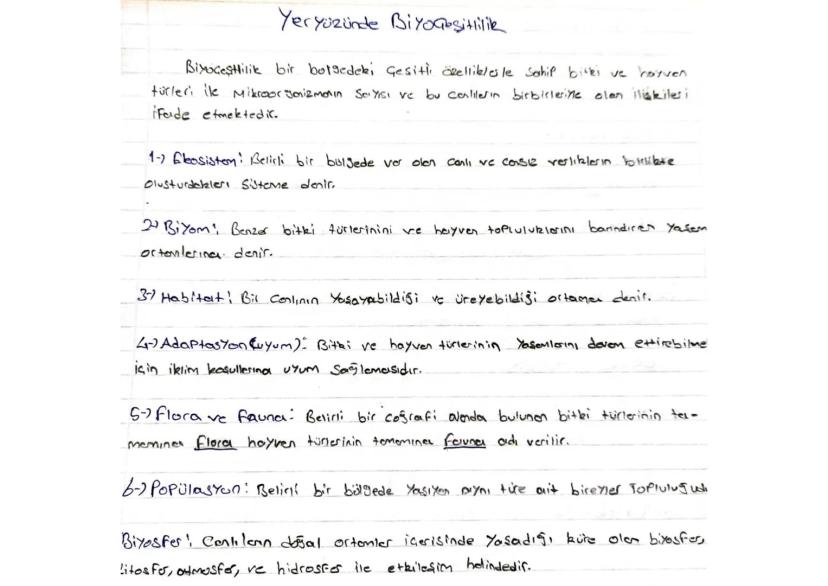 Yeryüzünde Biyoçeşitlilik
Biyoçeşitlilik bir bölgedeki çeşitli özelliklerle sahip bitki ve hayvan
türleri ile mikroorganizmanın sayısı ve bu canlıların birbirleriyle olan ilişkileri
ifade etmektedir.
1-) Ekosistem: Belirli bir bölgede var olan canlı ve cansız varlıkların birlikte
oluşturdukları sisteme denir.
2-) Biyom: Benzer bitki türlerinini ve hayvan topluluklarını barındıran yaşam
ortamlarına denir.
3-) Habitat: Bir canlının yaşayabildiği ve üreyebildiği ortama denir.
4-) Adaptasyon (uyum): Bitki ve hayvan türlerinin yaşamlarını devam ettirebilme
için iklim koşullarına uyum sağlamasıdır.
5-) Flora ve fauna: Belirli bir coğrafi alanda bulunan bitki türlerinin ta-
mamına flora hayvan türlerinin tamamına fauna adı verilir.
6-) Popülasyon: Belirli bir bölgede yaşıyan aynı türe ait bireyler topluluğudu
Biyosfer: Canlıların doğal ortamlar içerisinde yaşadığı küre olan biyosfer,
litosfer, atmosfer, ve hidrosfer ile etkileşim halindedir.